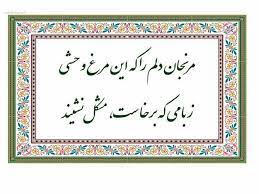 مرنجان دلم را که این مرغ وحشی
ز بامی که برخاست، مشکل نشیند